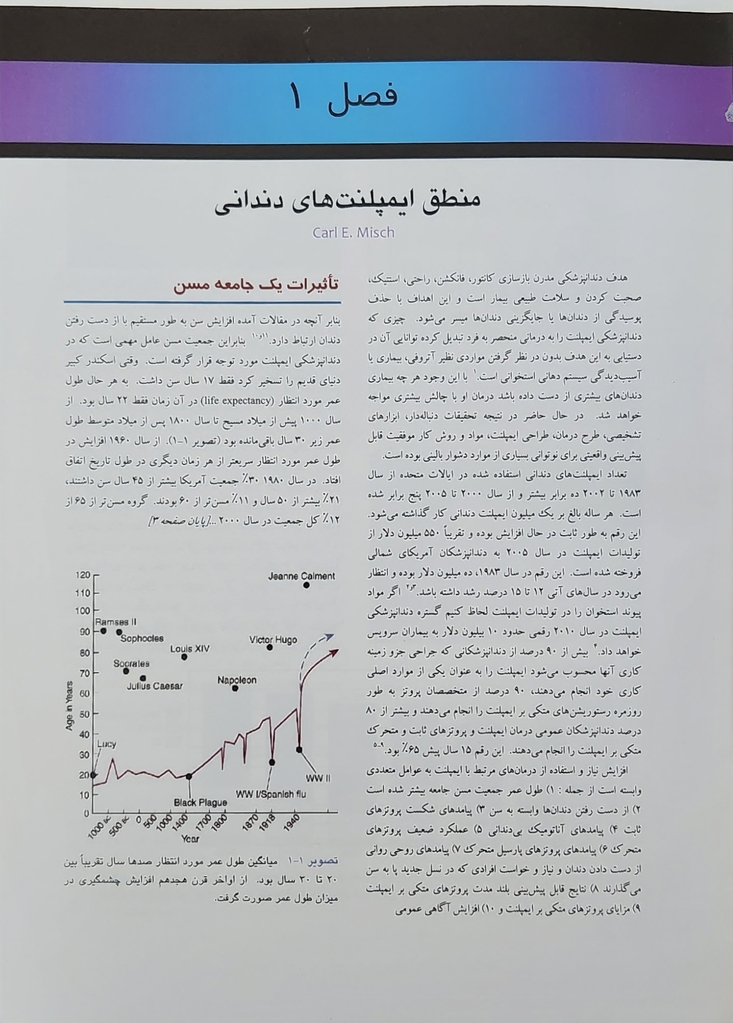 فصل ۱
منطق ایمپلنت‌های دندانی
Carl E. Misch
هدف دندانپزشکی مدرن بازسازی کانتور، فانکشن، راحتی، استتیک،
صحبت کردن و سلامت طبیعی بیمار است و این اهداف با حذف
پوسیدگی از دندان‌ها یا جایگزینی دندان‌ها میسر می‌شود. چیزی که
دندانپزشکی ایمپلنت را به درمانی منحصر به فرد تبدیل کرده توانایی آن در
دستیابی به این هدف بدون در نظر گرفتن مواردی نظیر آتروفی، بیماری یا
آسیب‌دیدگی سیستم دهانی استخوانی است.۱ با این وجود هر چه بیماری
دندان‌های بیشتری از دست داده باشد درمان او با چالش بیشتری مواجه
خواهد شد. در حال حاضر در نتیجه تحقیقات دنباله‌دار، ابزارهای
تشخیصی، طرح درمان، طراحی ایمپلنت، مواد و روش کار موفقیت قابل
پیش‌بینی واقعیتی برای نوتوانی بسیاری از موارد دشوار بالینی بوده است.
تعداد ایمپلنت‌های دندانی استفاده شده در ایالات متحده از سال
۱۹۸۳ تا ۲۰۰۲ ده برابر بیشتر و از سال ۲۰۰۰ تا ۲۰۰۵ پنج برابر شده
است. هر ساله بالغ بر یک میلیون ایمپلنت دندانی کار گذاشته می‌شود.
این رقم به طور ثابت در حال افزایش بوده و تقریباً ۵۵۰ میلیون دلار از
تولیدات ایمپلنت در سال ۲۰۰۵ به دندانپزشکان آمریکای شمالی
فروخته شده است. این رقم در سال ۱۹۸۳، ده میلیون دلار بوده و انتظار
می‌رود در سال‌های آتی ۱۲ تا ۱۵ درصد رشد داشته باشد.۲،۳ اگر مواد
پیوند استخوان را در تولیدات ایمپلنت لحاظ کنیم گستره دندانپزشکی
ایمپلنت در سال ۲۰۱۰ رقمی حدود ۱۰ بیلیون دلار به بیماران سرویس
خواهد داد.۴ بیش از ۹۰ درصد از دندانپزشکانی که جراحی جزو زمینه
کاری آنها محسوب می‌شود ایمپلنت را به عنوان یکی از موارد اصلی
کاری خود انجام می‌دهند، ۹۰ درصد از متخصصان پروتز به طور
روزمره رستوریشن‌های متکی بر ایمپلنت را انجام می‌دهند و بیشتر از ۸۰
درصد دندانپزشکان عمومی درمان ایمپلنت و پروتزهای ثابت و متحرک
متکی بر ایمپلنت را انجام می‌دهند. این رقم ۱۵ سال پیش ۶۵٪ بود.۵-۹
افزایش نیاز و استفاده از درمان‌های مرتبط با ایمپلنت به عوامل متعددی
وابسته است از جمله : ۱) طول عمر جمعیت مسن جامعه بیشتر شده است
۲) از دست رفتن دندان‌ها وابسته به سن ۳) پیامدهای شکست پروتزهای
ثابت ۴) پیامدهای آناتومیک بی‌دندانی ۵) عملکرد ضعیف پروتزهای
متحرک ۶) پیامدهای پروتزهای پارسیل متحرک ۷) پیامدهای روحی روانی
از دست دادن دندان و نیاز و خواست افرادی که در نسل جدید پا به سن
می‌گذارند ۸) نتایج قابل پیش‌بینی بلند مدت پروتزهای متکی بر ایمپلنت
۹) مزایای پروتزهای متکی بر ایمپلنت و ۱۰) افزایش آگاهی عمومی
تأثیرات یک جامعه مسن
بنابر آنچه در مقالات آمده افزایش سن به طور مستقیم با از دست رفتن
دندان ارتباط دارد.۱۰،۱۱ بنابراین جمعیت مسن عامل مهمی است که در
دندانپزشکی ایمپلنت مورد توجه قرار گرفته است. وقتی اسکندر کبیر
دنیای قدیم را تسخیر کرد فقط ۱۷ سال سن داشت. به هر حال طول
عمر مورد انتظار (life expectancy) در آن زمان فقط ۲۲ سال بود. از
سال ۱۰۰۰ پیش از میلاد مسیح تا سال ۱۸۰۰ پس از میلاد متوسط طول
عمر زیر ۳۰ سال باقی‌مانده بود (تصویر ۱-۱). از سال ۱۹۶۰ افزایش در
طول عمر مورد انتظار سریعتر از هر زمان دیگری در طول تاریخ اتفاق
افتاد. در سال ۱۹۸۰ ۳۰٪ جمعیت آمریکا بیشتر از ۴۵ سال سن داشتند،
۲۱٪ بیشتر از ۵۰ سال و ۱۱٪ مسن‌تر از ۶۰ بودند. گروه مسن‌تر از ۶۵ از
۱۲٪ کل جمعیت در سال ۲۰۰۰ ...[پایان صفحه ۳]
Age in Years
120
110
100
90
80
70
60
50
40
30
20
10
0
Jeanne Calment
Ramses II
Sophocles
Louis XIV
Victor Hugo
Socrates
Julius Caesar
Napoleon
Lucy
WW II
WW I/Spanish flu
Black Plague
1000 BC 500 BC 0 500 1000 1400 1700 1800 1870 1918 1940
Year
تصویر ۱-۱ میانگین طول عمر مورد انتظار صدها سال تقریباً بین
۲۰ تا ۳۰ سال بود. از اواخر قرن هجدهم افزایش چشمگیری در
میزان طول عمر صورت گرفت.